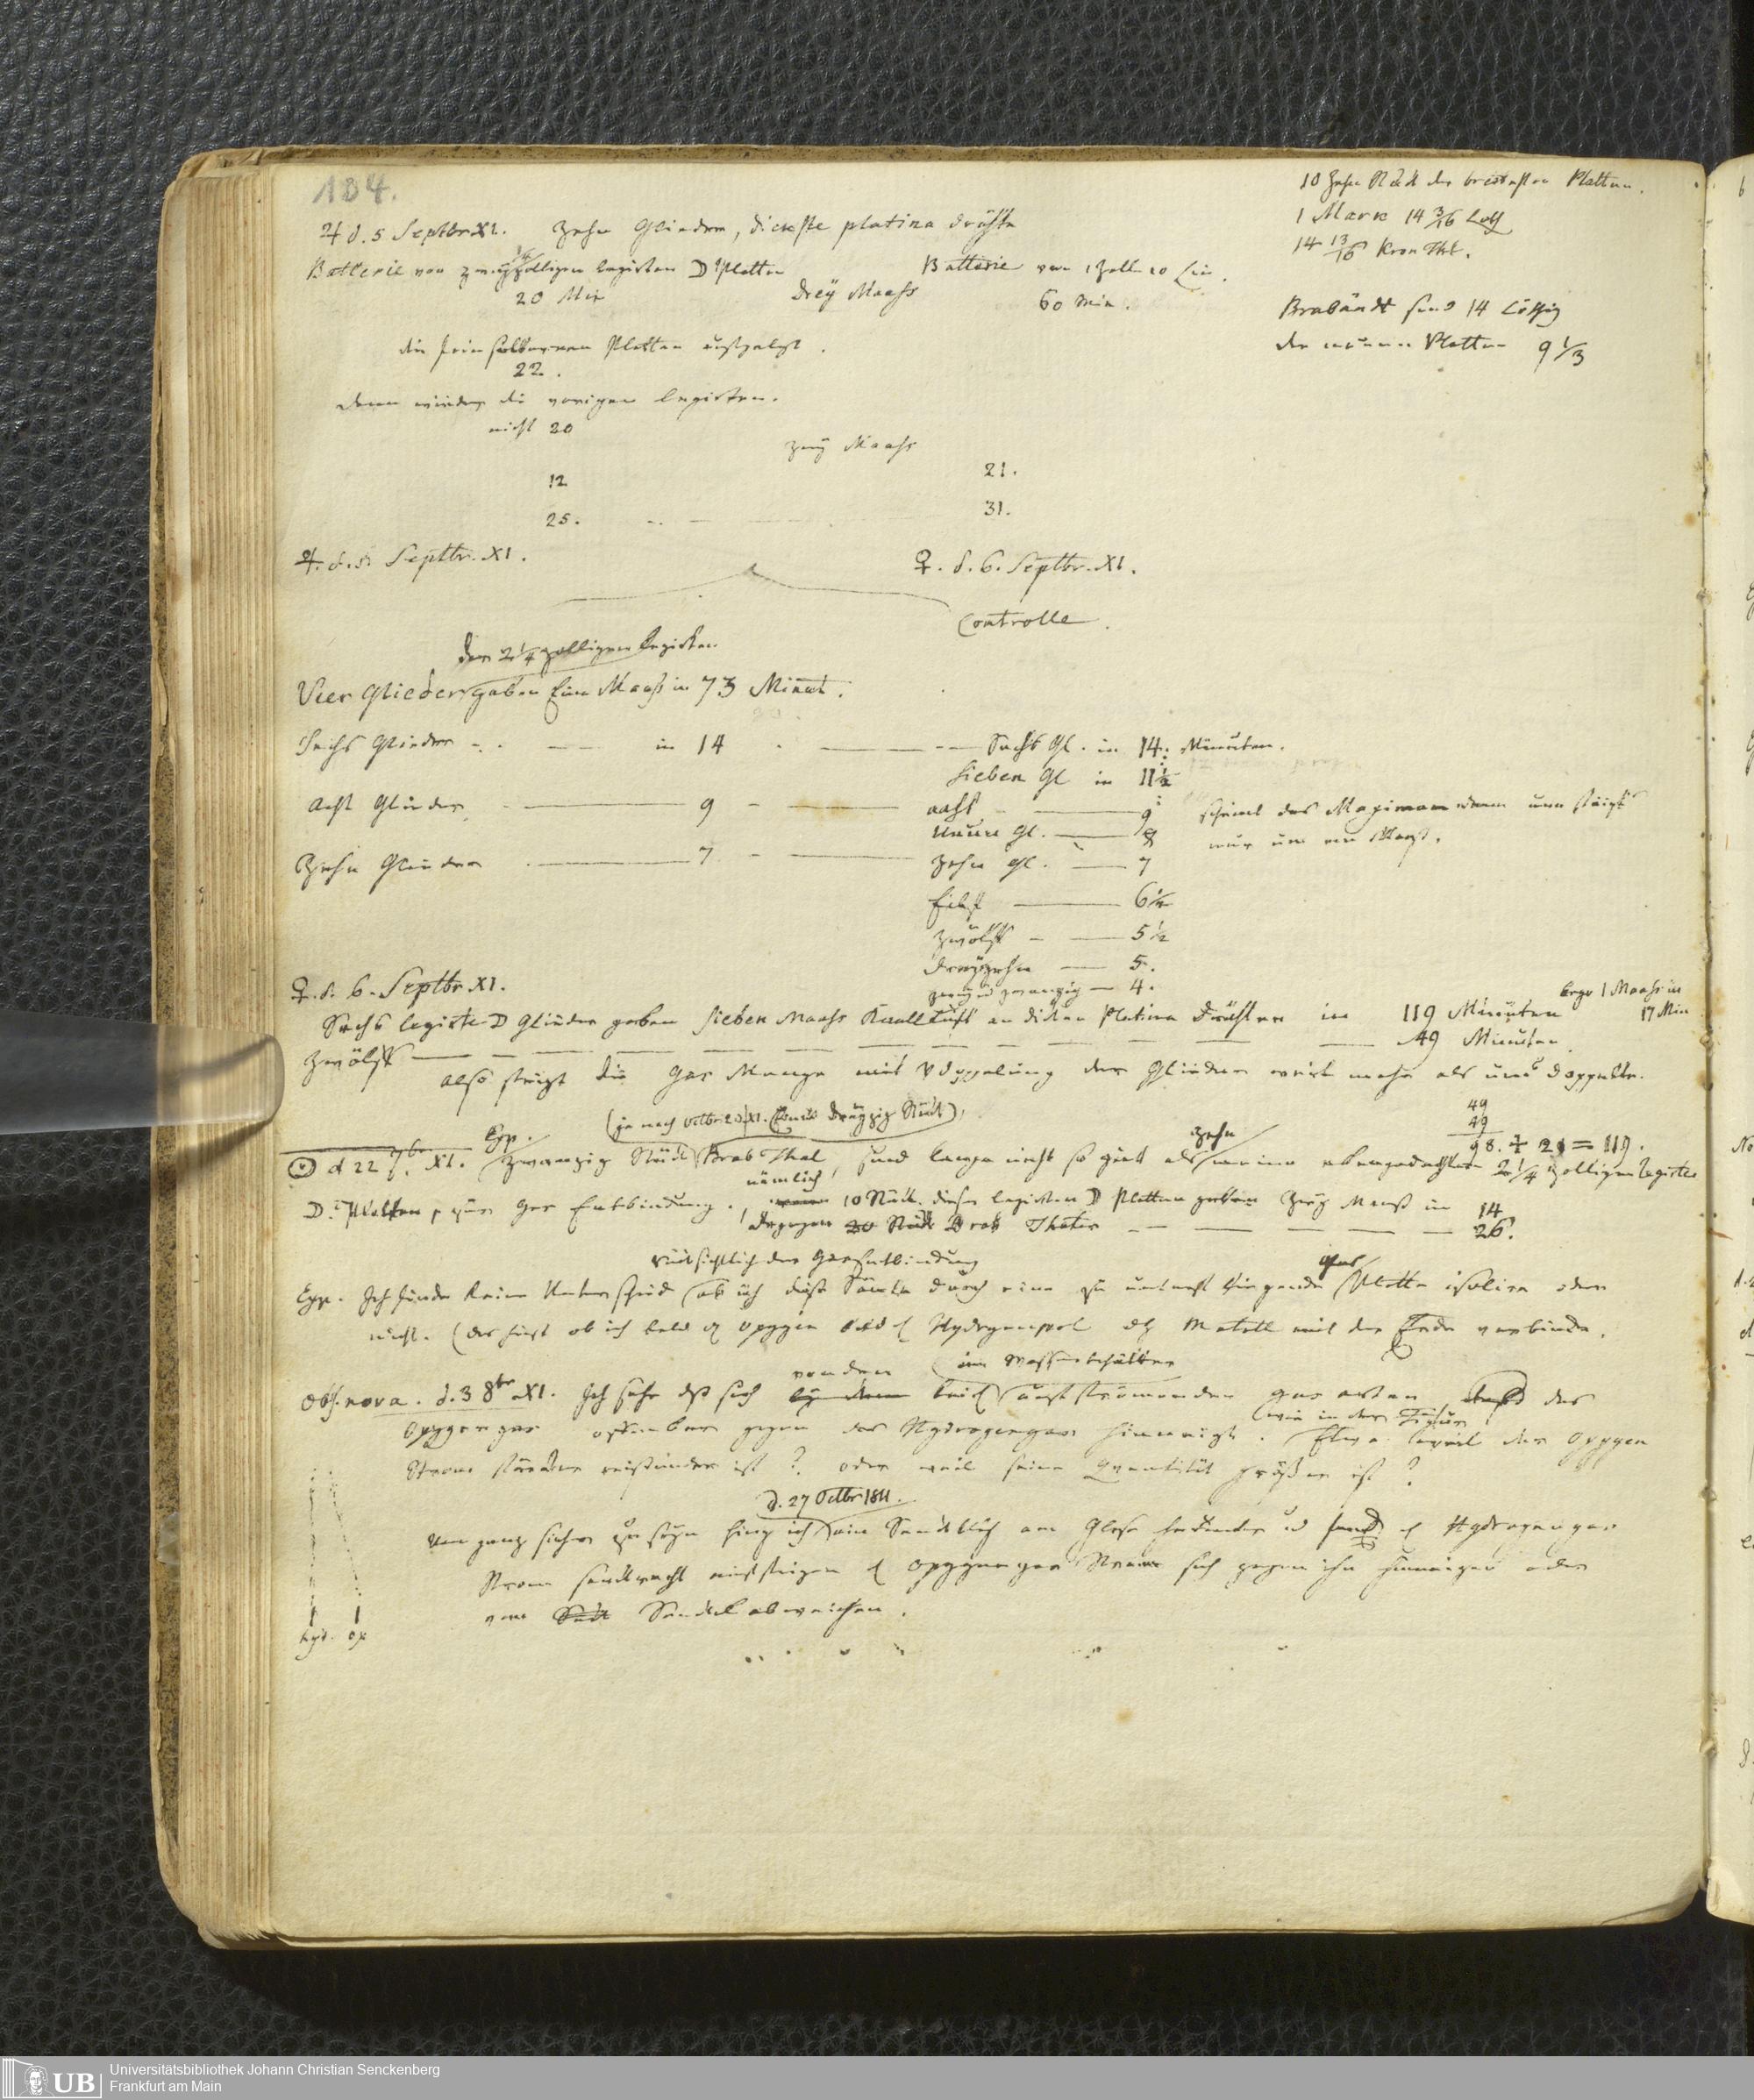 134.
10 Zehn Stück der breitesten Platten.
1 Mark 14 3/16 Loth
14 13/16 Kron Thlr.
♃ d. 5 Septbr XI. Zehn Glieder, dickste platina dräthe
Batterie von zwey 1/4 zolligen legirten ☽ Platten
Batterie von 1 Zoll 10 Lin.
20 Min
drey Maass
60 Min.
Brabändt sind 14 Löthig
die neuen Platten 9 1/3
die feinsilbernen Platten
22.
dann wieder die vorigen legirten.
nicht 20
zwey Maass
12
21.
25.
31.
♃. d. 5. Septbr. XI.
♀. d. 6. Septbr. XI.
Controlle.
der 2 1/4 zolligen legirten
Vier Glieder gaben Eine Maass in 73 Minut.
Sechs Glieder in 14
Sechs Gl. in 14. Minuten.
Sieben Gl in 11 1/2
Acht Glieder 9
acht 9
scheint das Maximum denn nun steigt
Neun Gl. 8
nur um ein Maass.
Zehn Glieder 7
Zehn Gl. 7
Eilf 6 1/2
Zwölf 5 1/2
dreyzehn 5.
zwey u zwanzig 4.
♀. d. 6. Septbr XI.
ergo 1 Maass in
17 Min
Sechs legirte ☽ Glieder gaben sieben Maass Knallluft an dicken Platina Dräthen in 119 Minuten
Zwölf 49 Minuten
also steigt die Gas Menge mit Vdoppelung der Glieder weit mehr als ums doppelte.
49
49
98. + 21 = 119.
(ja nach Octbr 20 XI. sechs dreyzig Stück)
☉ d 22 7br. XI. Exp. Zwanzig Stück Brab Thal, sind lange nicht so gut als zehn meine obengedachten 2 1/4 zolligen legirte
D. Platten, zur Gas Entbindung. nämlich 10 Stück dieser legirten ☽ Platten geben zwey Maass in 14
dagegen 20 Stück Brab Thaler 26.
rücksichtlich der Gasentbindung
Exp. Ich finde keinen Unterschied ob ich diese Säule durch eine zu unterst liegende Glas Platte isolire oder
nicht. (das heist ob ich bald Oxygen bald Hydrogenpol Metall mit der Erde verbinde.
Obs. nova. d. 3 8br XI. Ich sehe dss sich von den beid im Wasserbehälter aufströmenden gas arten das
Oxygengas offenbar gegen das Hydrogengas hinneigt. (wie in der Figur) Etwa weil der Oxygen
Strom stärker ist? oder weil seine Quantität größer ist?
d. 27 Octbr 1811.
Um ganz sicher zu seyn hing ich ein Senkbley am Glase herunter u fand Hydrogengas
Strom senkrecht aufsteigen Oxygengas Strom sich gegen ihn hinneigen oder
vom Senkel abweichen.
hyd. ox
UB
Universitätsbibliothek Johann Christian Senckenberg
Frankfurt am Main